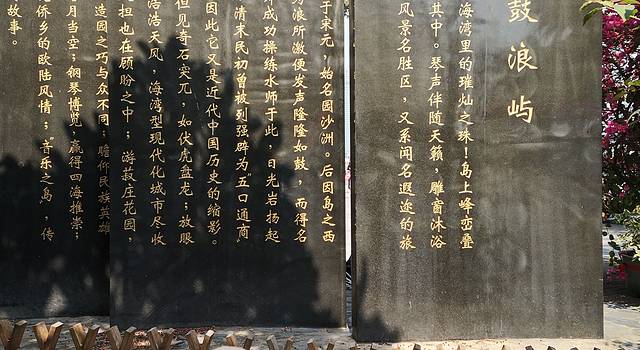 鼓浪屿
海湾里的璀灿之珠！岛上峰峦叠
其中。琴声伴随天籁，雕窗沐浴
风景名胜区，又系闻名遐迩的旅
于宋元，始名园沙洲。后因岛之西
浪所激便发声隆隆如鼓，而得名
成功操练水师于此，日光岩扬起
清末民初曾被列强辟为“五口通商”
因此它又是近代中国历史的缩影。
但见奇石突兀，如伏虎盘龙；放眼
浩浩天风，海湾型现代化城市尽收
担也在顾盼之中；游菽庄花园，
造园之巧与众不同；瞻仰民族英雄
月当空；钢琴博览，赢得四海推崇；
侨乡的欧陆风情；“音乐之岛”，传
故事。